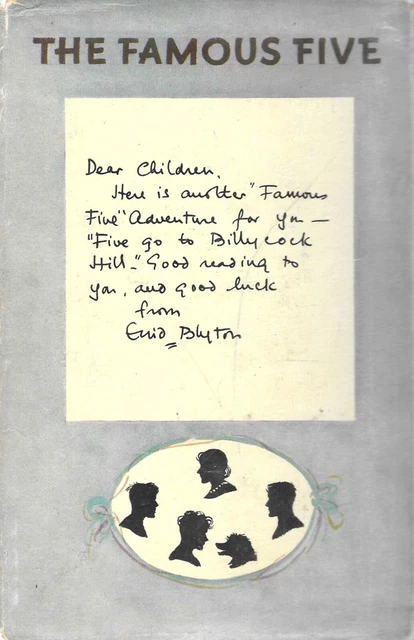 THE FAMOUS FIVE
Dear Children,
Here is another "Famous
Five" Adventure for you —
"Five go to Billycock
Hill." Good reading to
you, and good luck
from
Enid Blyton